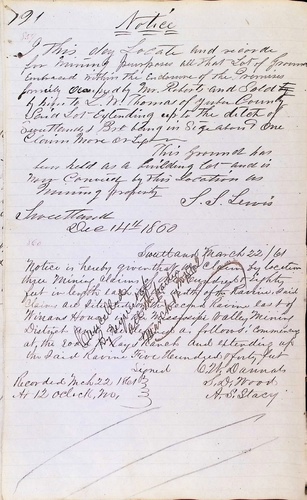 191
Notice
I this day Locate and recorde
for Mining purposes all that Lot of Ground
Embraced within the Enclosure of the Premises
formily by Mr. Roberts and Sold
by him to L. W. Thomas of Yuba County
Said Lot Extending up to the ditch of
Sweetland & Bro being in Size about One
Claim More or Less
This Ground has
been held as a Building Lot and is
Now Convertd by this Location as
Mining property
S. S. Lewis
Sweetland
Dec 14th 1860
Sweetland March 22/61
Notice is hereby given that we Claim by location
three Mining Claims
feet in length Each width of the Ravine Said
Claims are Situated on Second Ravine East of
Winans House Valley Mining
District as follows: Commencing
at the Ranch and extending up
the Said Ravine Five Hundred & forty feet
Signed
O. W. Dannals
Wood
Recorded Mch 22 1861
At 12 O clock, M,
H. S. Stacy